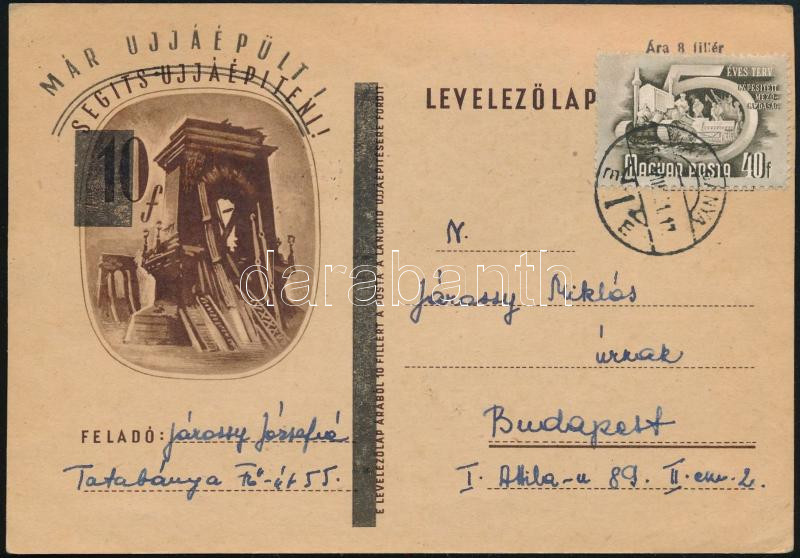 MÁR UJJÁÉPÜLT!
SEGITS UJJÁÉPÍTENI!
10 f
Ára 8 fillér
LEVELEZŐLAP
5 ÉVES TERV
GÉPESÍTETT
MEZŐ-
GAZDASÁG
MAGYAR POSTA 40f
E LEVELEZŐLAP ÁRÁBÓL 10 FILLÉRT A POSTA A LÁNCHÍD UJJÁÉPÍTÉSÉRE FORDÍT
N.
Járossy Miklós
úrnak
Budapest
I. Attila-u 89. II. em. 2.
FELADÓ: Járossy Józsefné
Tatabánya Fő-út 55.
darabanth